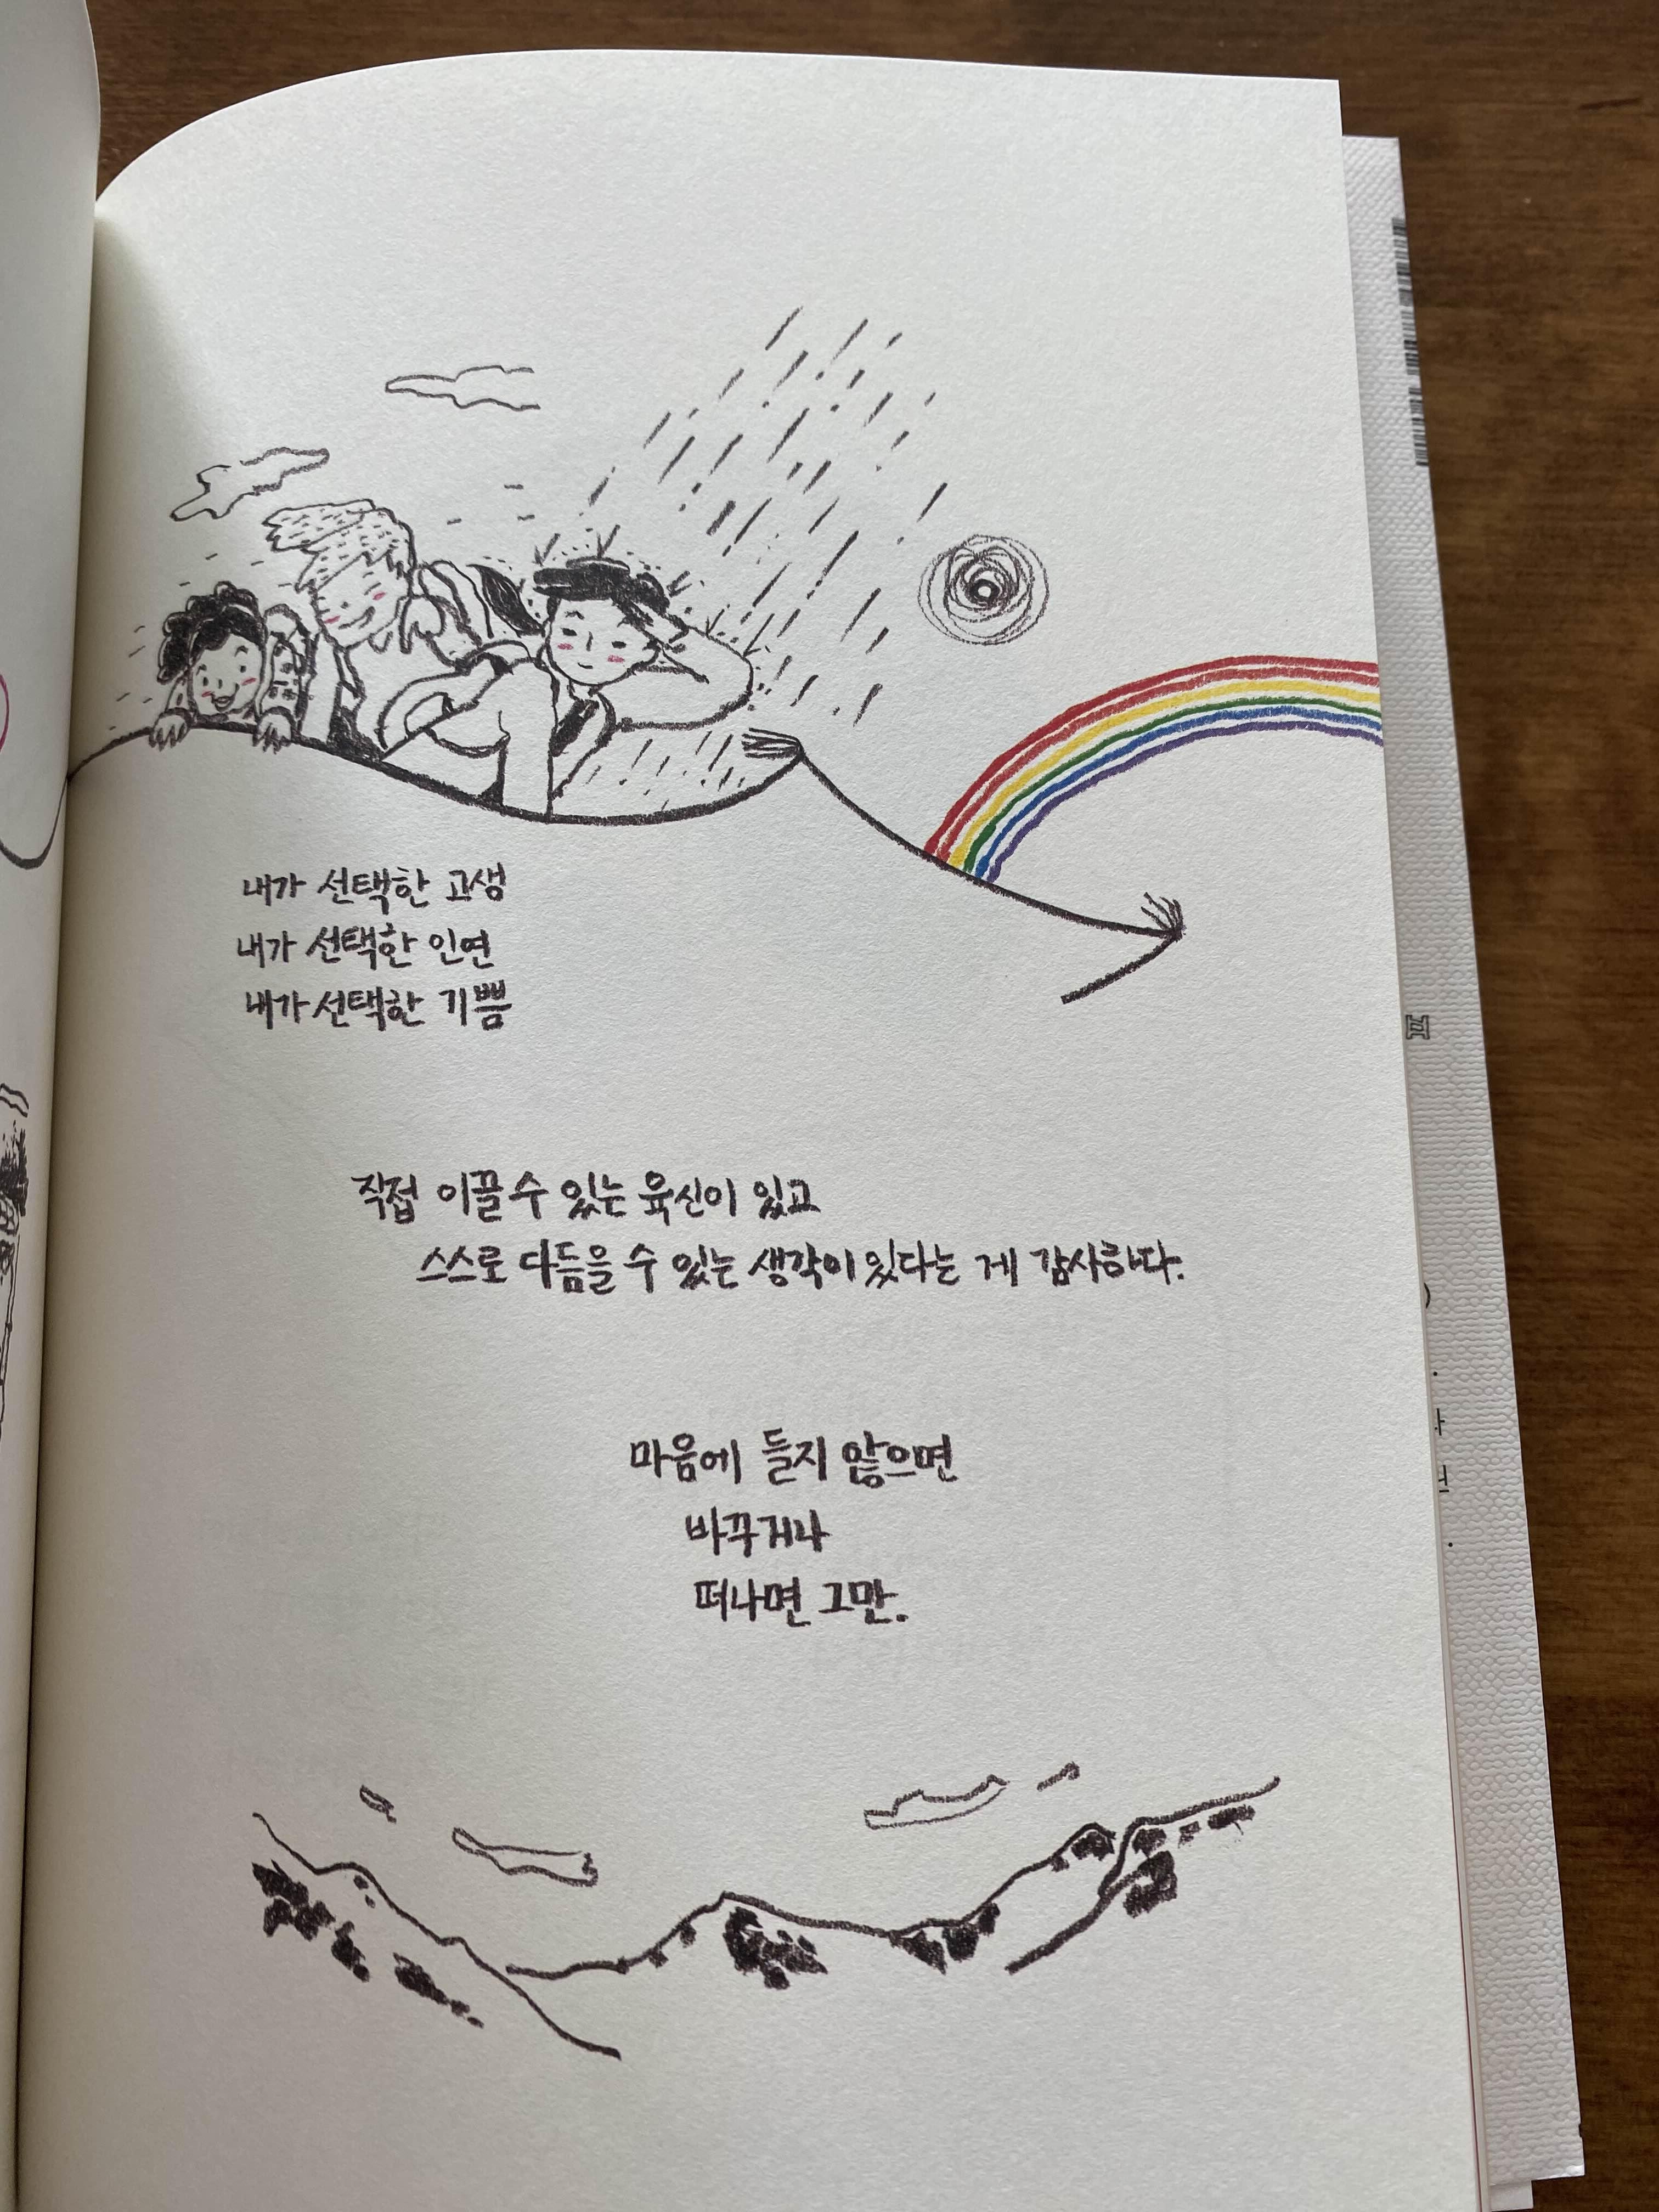 내가 선택한 고생
내가 선택한 인연
내가 선택한 기쁨
직접 이끌 수 있는 육신이 있고
스스로 다듬을 수 있는 생각이 있다는 게 감사하다.
마음에 들지 않으면
바꾸거나
떠나면 그만.